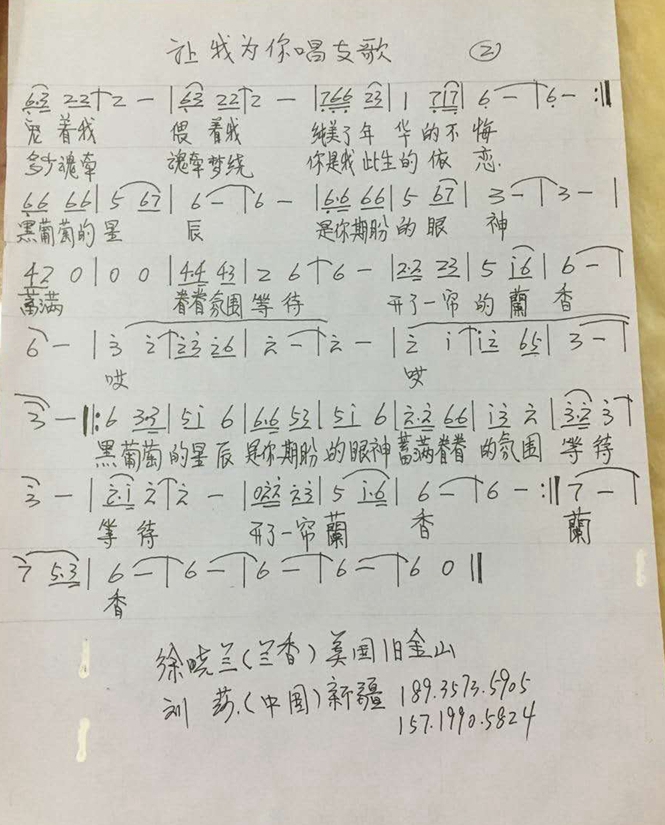 让我为你唱支歌 ②
6·3 22 | 2 — | 63 22 | 2 — | 766 23 | 1 717 | 6 — | 6 — :||
着我 偎着我 纯美了年华的不悔
多少魂牵 魂牵梦绕 你是我此生的依恋.
66 66 | 5 67 | 6 — | 6 — | 6·6 66 | 5 67 | 3 — | 3 — |
黑葡萄的星辰 是你期盼的眼神
42 0 | 0 0 | 4·4 43 | 2 6 | 6 — | 2·2 23 | 5 i6 | 6 — |
蓄满 眷眷氛围等待 开了一帘的蘭香
6 — | 3̇ 2̇ | 2̇3̇ 2̇6 | 2̇ — | 2̇ — | 2̇ i | i2̇ 65 | 3 — |
哎 哎
3 — ||: 6 3·3 | 5i 6 | 6·6 53 | 5i 6 | 2̇·2̇ 66 | i3̇ 2̇ | 3̇·2̇ 3̇ |
黑葡萄的星辰是你期盼的眼神蓄满眷眷的氛围 等待
3̇ — | 2̇·i 2̇ | 2̇ — | 02̇2̇ 2̇3̇ | 5 i·6 | 6 — | 6 — :|| 7 — |
等待 开了一帘蘭香 蘭
7 5·3 | 6 — | 6 — | 6 — | 6 — | 6 0 ||
香
徐晓兰(兰香)美国旧金山
刘 荔.(中国)新疆 189.3573.5905
157.1990.5824